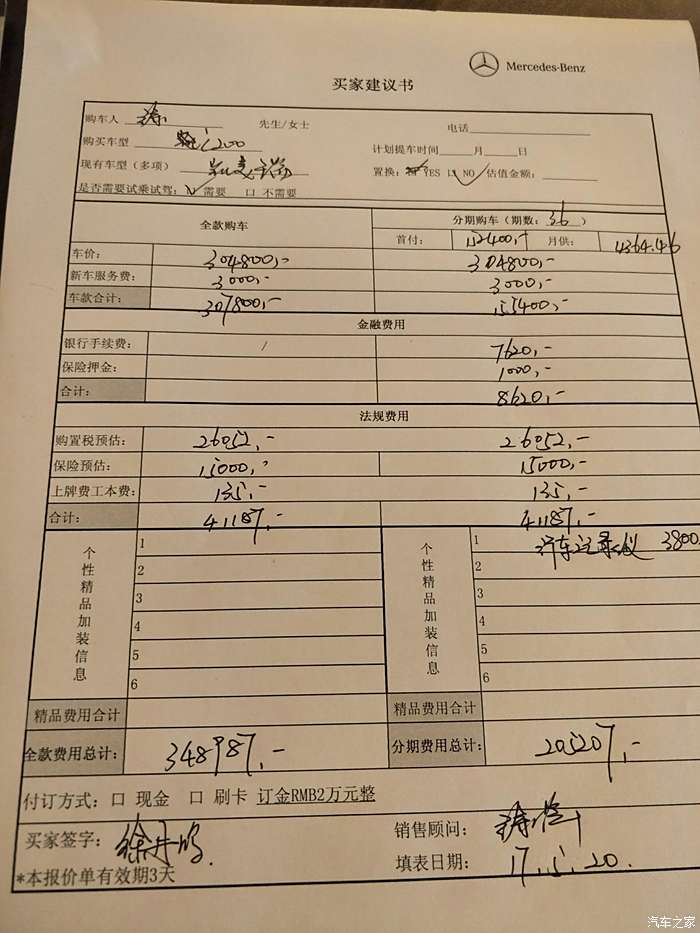 Mercedes-Benz
买家建议书
购车人 先生/女士 电话
购买车型 200 计划提车时间 月 日
现有车型（多项） 置换： YES 口 NO 估值金额：
是否需要试乘试驾： 需要 口 不需要
全款购车 分期购车（期数：36）
首付： 152400,- 月供： 4364.46
车价： 304800,- 304800,-
新车服务费： 3000,- 3000,-
车款合计： 307800,- 155400,-
金融费用
银行手续费： / 7620,-
保险押金： 1000,-
合计： 8620,-
法规费用
购置税预估： 26052,- 26052,-
保险预估： 15000,- 15000,-
上牌费工本费： 135,- 135,-
合计： 41187,- 41187,-
个性精品加装信息 1 2 3 4 5 6
个性精品加装信息 1 汽车记录仪 3800. 2 3 4 5 6
精品费用合计 精品费用合计
全款费用总计： 348987,- 分期费用总计： 205207,-
付订方式：口 现金 口 刷卡 订金RMB2万元整
买家签字： 销售顾问：
*本报价单有效期3天 填表日期： 17.5.20.
汽车之家